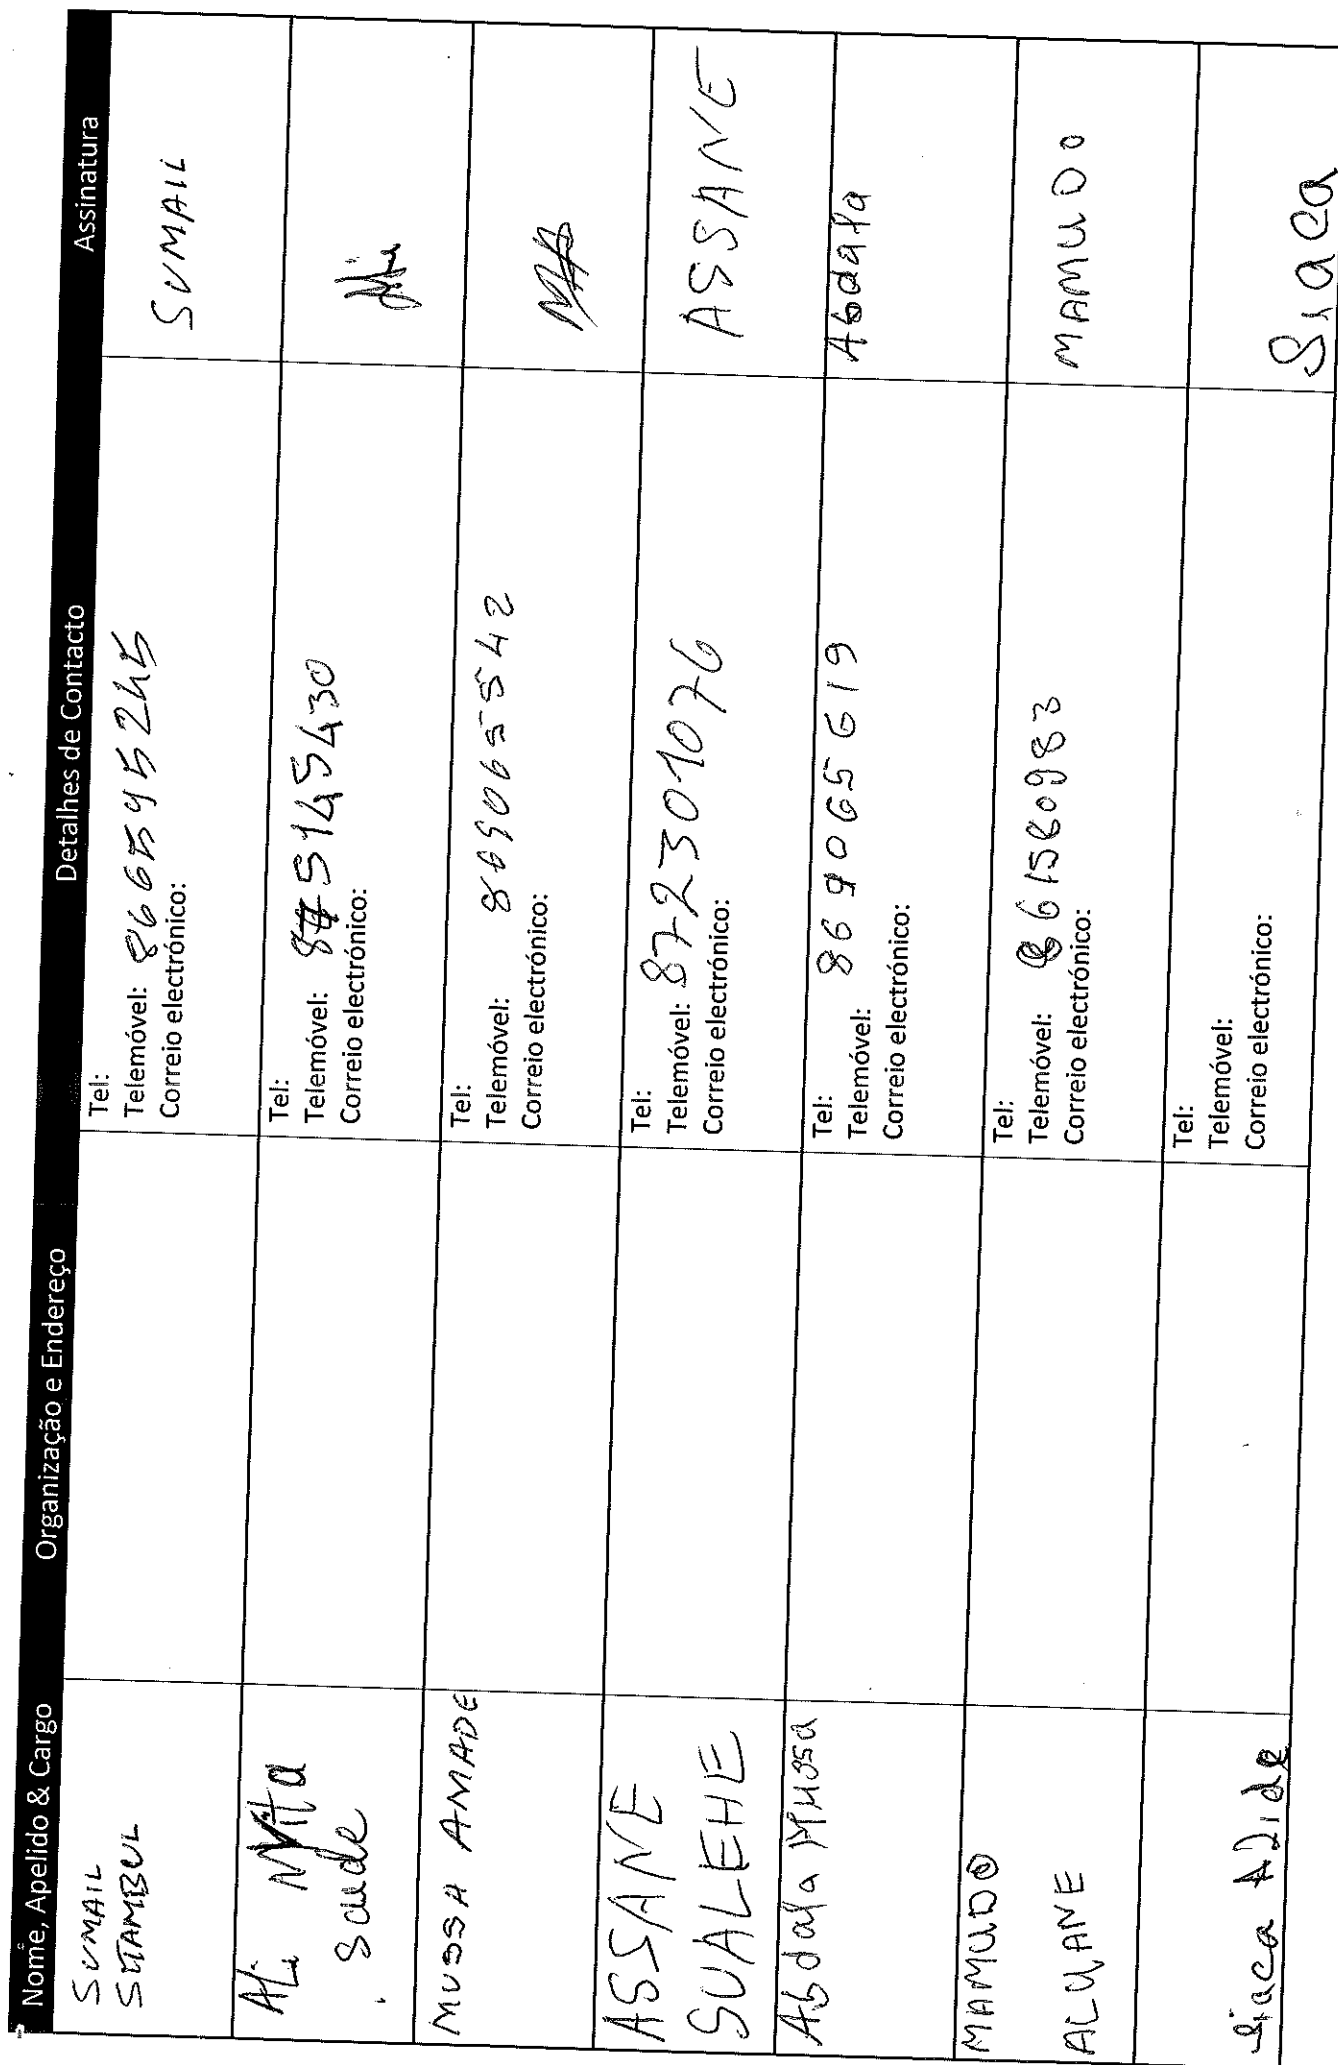 Nome, Apelido & Cargo Organização e Endereço Detalhes de Contacto Assinatura
SUMAIL
STAMBUL
Tel:
Telemóvel: 866595245
Correio electrónico:
SUMAIL
Ali
saude
Tel:
Telemóvel:
Correio electrónico:
MUSSA AMADE
Tel:
Telemóvel: 869065542
Correio electrónico:
MA
ASSANE
SUALEHE
Tel:
Telemóvel: 872301076
Correio electrónico:
ASSANE
Abdala Mussa
Tel:
Telemóvel: 869065619
Correio electrónico:
Abdala
MAMUDO
ALUANE
Tel:
Telemóvel: 861580983
Correio electrónico:
MAMUDO
Siaca
Tel:
Telemóvel:
Correio electrónico:
Siaca